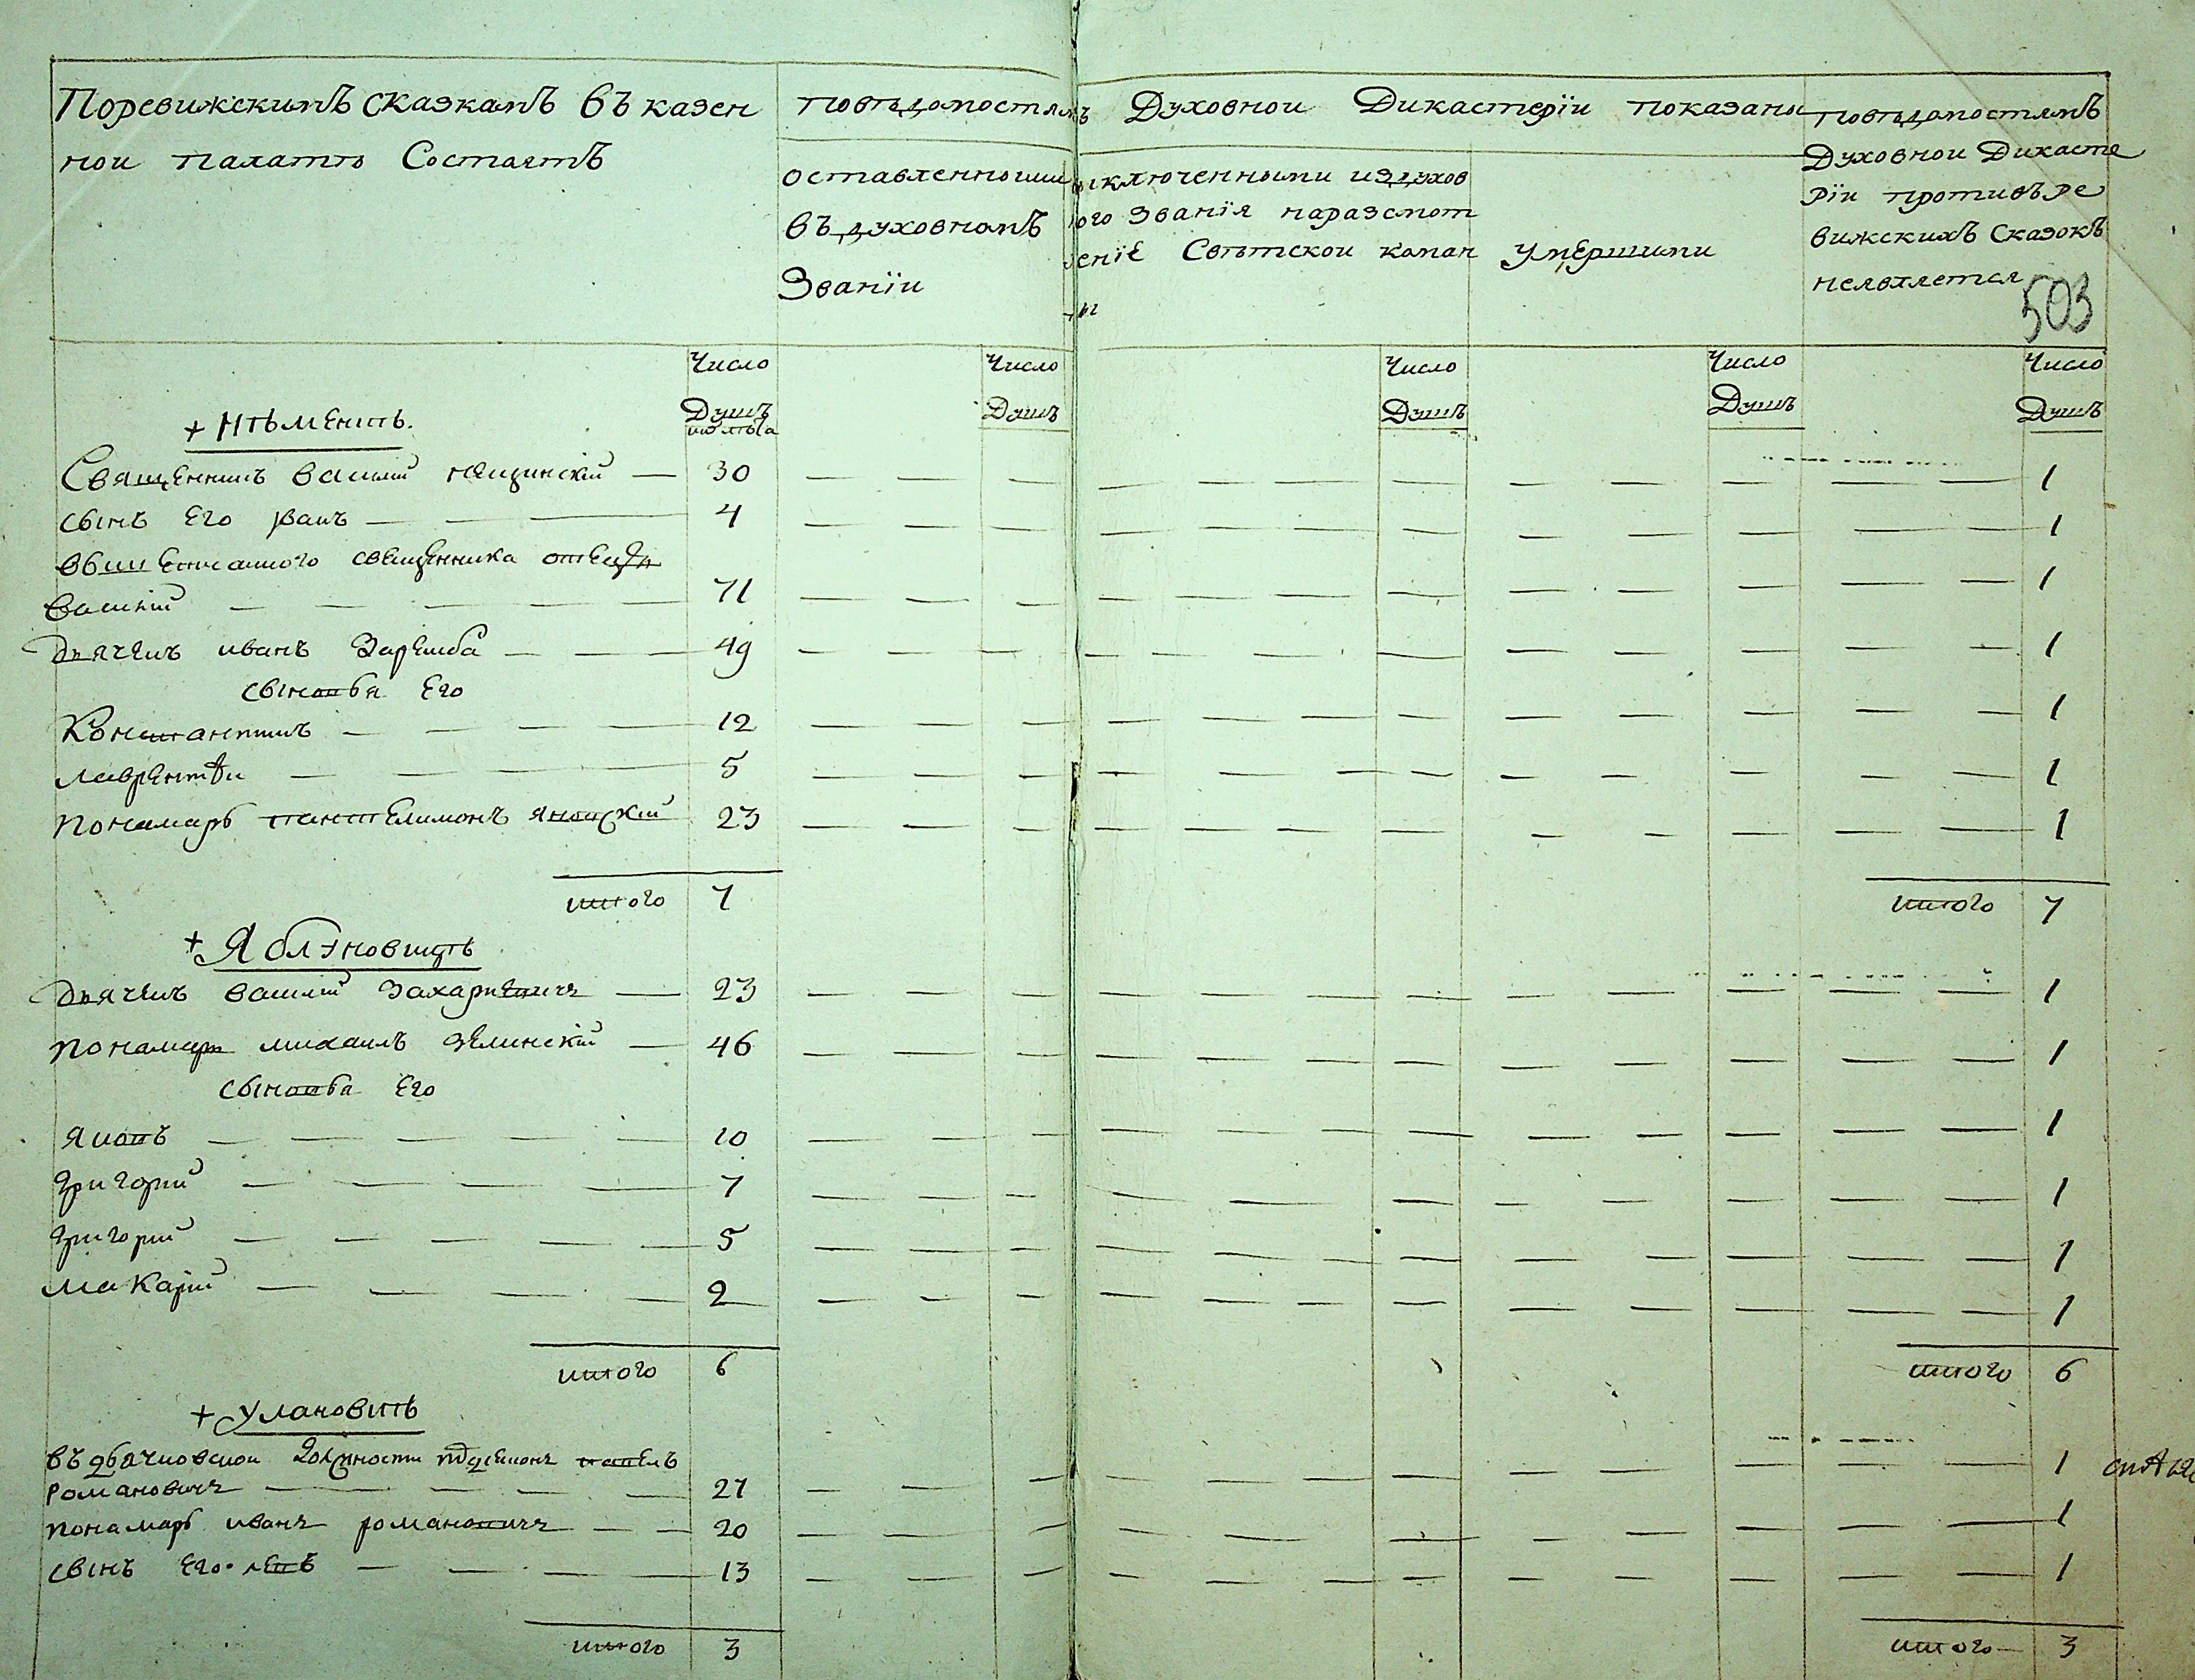 Поревижскимъ сказкамъ въ казен
ной палатѣ Состоятъ
Повѣдомостямъ Духовной Дикастерїи показаны
оставленными
въ духовномъ
Званїи
ыключенными издухов
ного Званїя наразсмот
ренїе Свѣтской коман
ды
Умершими
Повѣдомостямъ
Духовной Дикасте
рїи противъ ре
вижскихъ Сказокъ
неявляется
503
Число Душъ Число Душъ Число Душъ Число Душъ Число Душъ
+ Священникъ василий 30 1
сынъ его 4 1
вышеписанного священника отецъ
василий 71 1
Дьячекъ иванъ Заремба 49 1
сыновья его
Константинъ 12 1
лаврентѣи 5 1
Пономарь пантелимонъ яновский 23 1
итого 7 итого 7
+ Яблоновицѣ
Дьячекъ василий захариевичъ 23 1
Пономарь михаилъ зелинский 46 1
сыновья его
яковъ 10 1
григорий 7 1
григорий 5 1
макарий 2 1
итого 6 итого 6
+ Улановѣ
въ дьячковской должности павелъ
романовичъ 27 1
пономарь иванъ романовичъ 20 1
сынъ его левъ 13 1
итого 3 итого 3